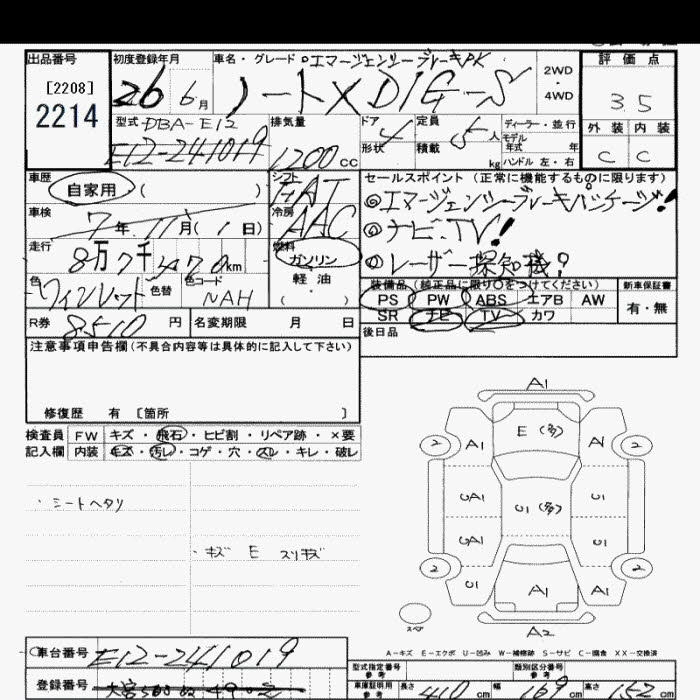 出品番号 初度登録年月 車名・グレード エマージェンシーブレーキPK 2WD 評価点
[2208] 26 6月 ノートX DIG-S 4WD 3.5
2214 型式 DBA-E12 排気量 ドア 4 定員 5人 ディーラー・並行 外装 内装
E12-241019 1200cc 形状 積載 kg モデル年式 年 ハンドル 左・右 C C
車歴 自家用 ( ) シフト FAT セールスポイント (正常に機能するものに限ります)
車検 7年 11月 ( 1日) 冷房 AAC ◎エマージェンシーブレーキパッケージ!
走行 8万7千470km 燃料 ガソリン ◎ナビ、TV!
軽油 ◎レーザー探知機?
色 ワインレット 色替 色コード NAH ( ) 装備品(純正品に限り○をつけてください) 新車保証書
PS PW ABS エアB AW 有・無
SR ナビ TV カワ
R券 8510円 名変期限 月 日 後日品
注意事項申告欄(不具合内容等は具体的に記入して下さい)
修復歴 有 [箇所 ]
検査員 FW キズ・飛石・ヒビ割・リペア跡・×要
記入欄 内装 キズ・汚レ・コゲ・穴・スレ・キレ・破レ
・シートヘタリ
・キズ E スリキズ
A1
E(多)
2 A1 A1 2
UA1 U1(多) U1
UA1 U1
2 U1 A1 A1 2
スペア A2
A-キズ E-エクボ U-凹み W-補修跡 S-サビ C-腐食 XX-交換済
車台番号 E12-241019
登録番号 型式指定番号 参考 類別区分番号 参考
車庫証明用 参考 長さ 410cm 幅 169cm 高さ 152cm